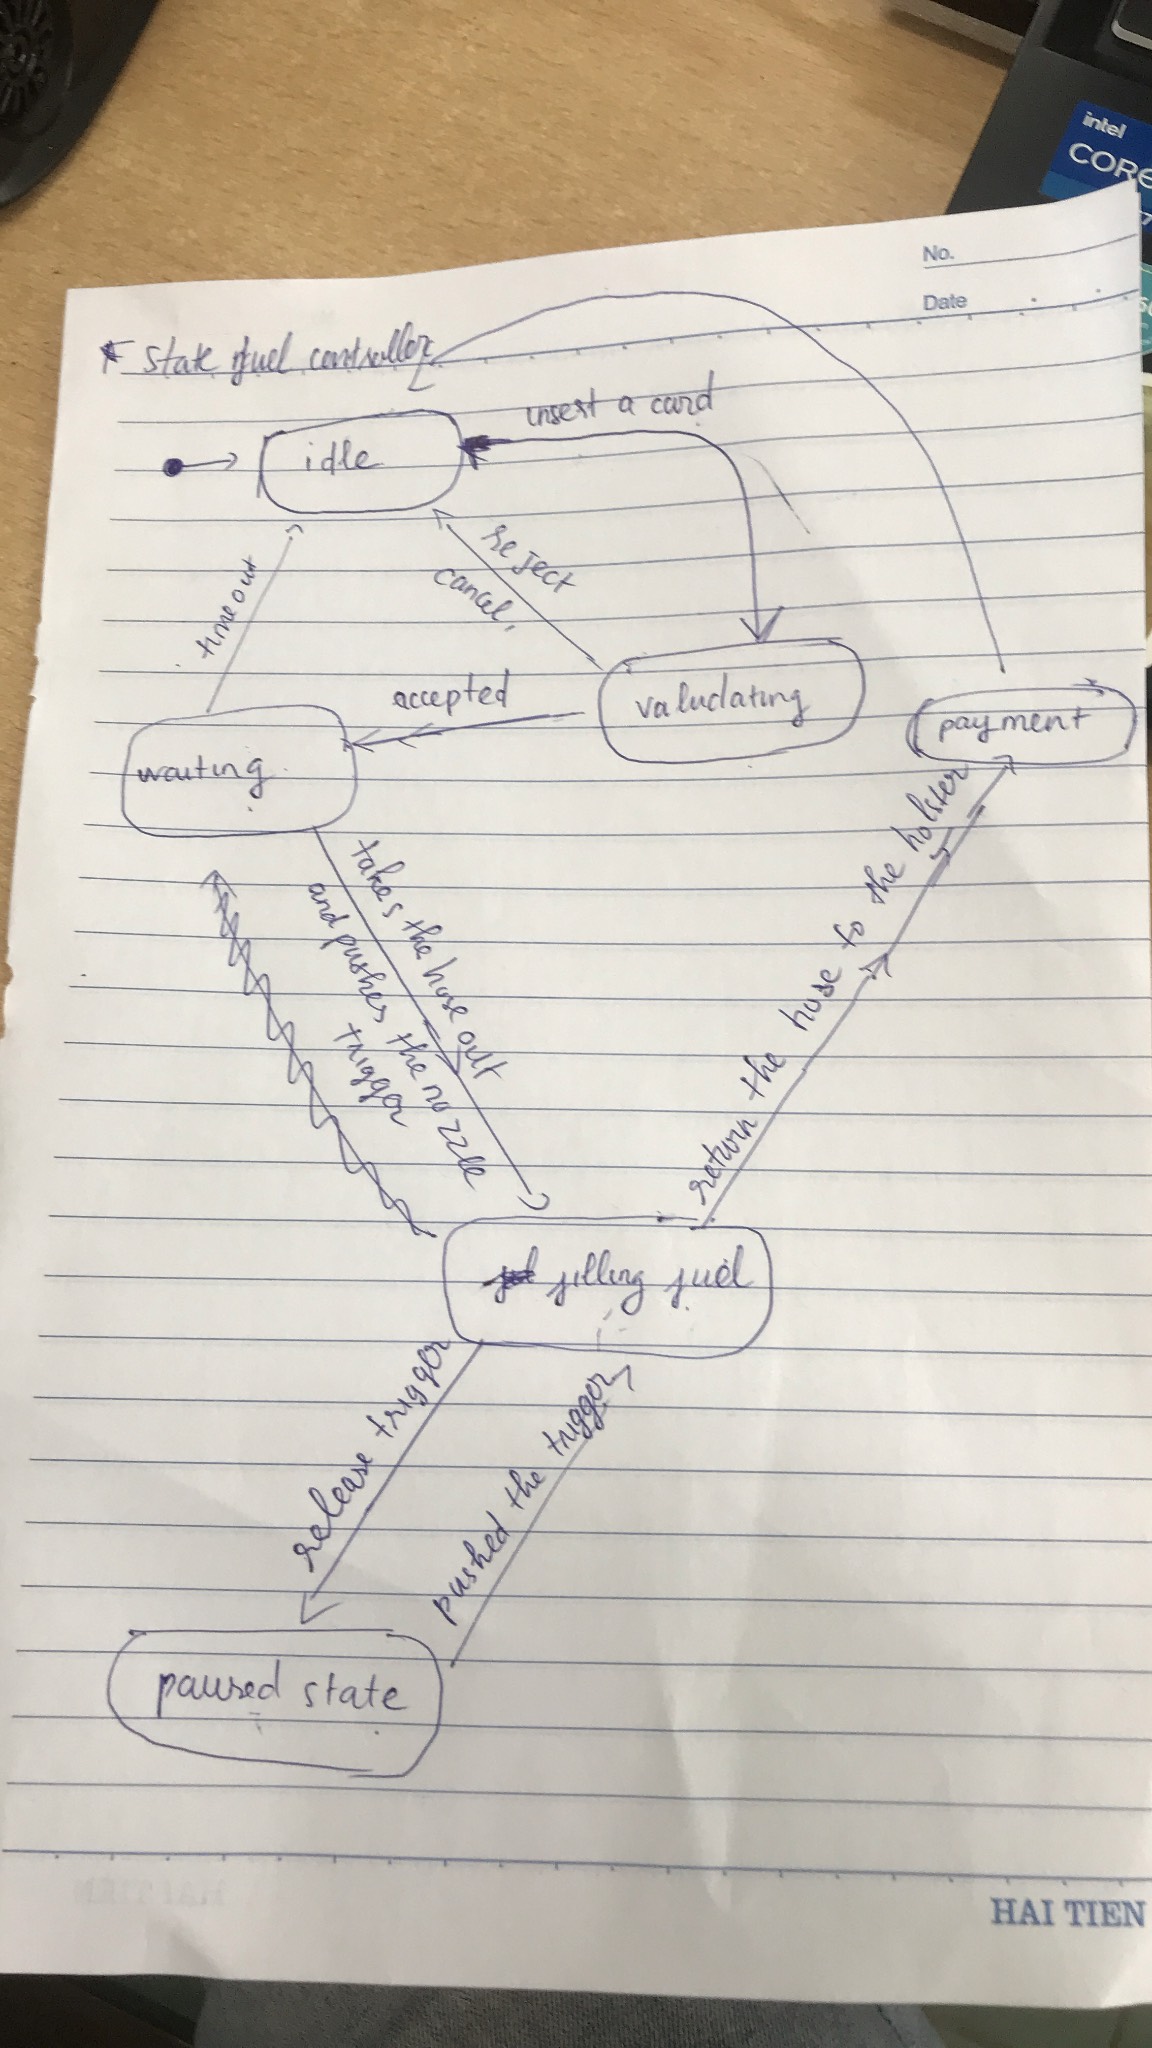 intel
CORE
No.
Date
* State fuel controller
insert a card
idle
reject
cancel,
timeout
accepted
validating
payment
waiting
takes the hose out
and pushes the nozzle
trigger
return the hose to the holster
filling fuel
release trigger
pushed the trigger
paused state
HAI TIEN